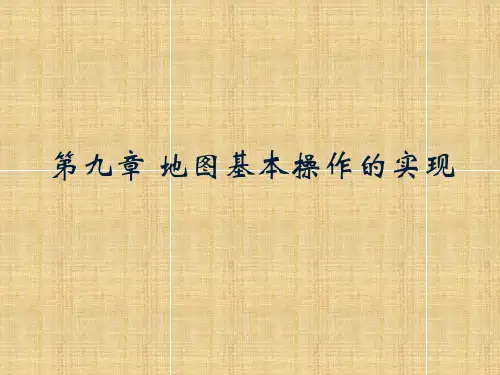 第九章 地图基本操作的实现